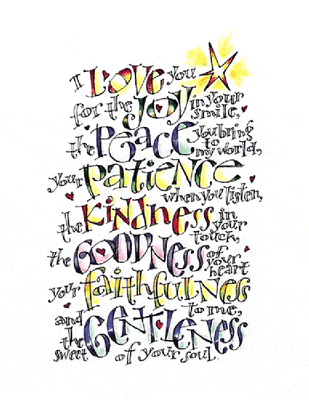 I LOVE you
for the JOY in your smile,
the PEACE you bring to my world,
your PATiENCE
when you listen,
the KiNDNESS in your touch,
the GOODNESS of your heart
your FAiTHFULNESS
to me,
and the sweet GENTLENESS
of your soul.